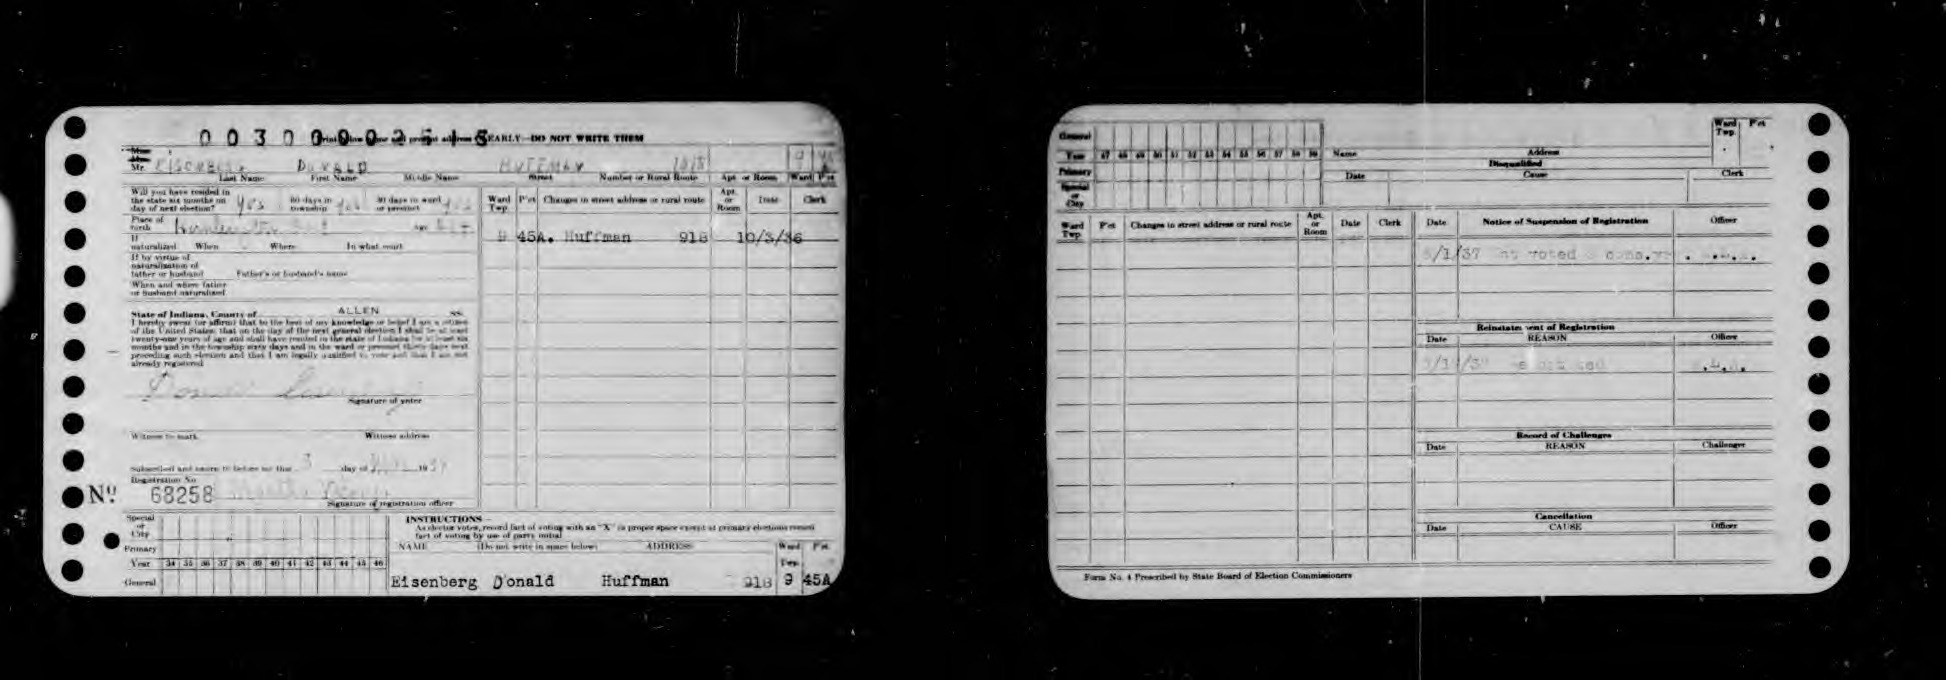 003000002515
Print below name and present address CLEARLY—DO NOT WRITE THEM
Mr. EISENBERG DONALD HUFFMAN 9
Last Name First Name Middle Name Street Number or Rural Route Apt. or Room Ward P'ct
Will you have resided in the state six months on day of next election? Yes 60 days in township Yes 30 days in ward or precinct Yes
Place of birth Age
If naturalized When Where In what court
If by virtue of naturalization of father or husband Father's or husband's name
When and where father or husband naturalized
Ward Twp. P'ct Changes in street address or rural route Apt. or Room Date Clerk
9 45A. Huffman 918 10/3/36
State of Indiana, County of ALLEN ss.
I hereby swear (or affirm) that to the best of my knowledge or belief I am a citizen
of the United States; that on the day of the next general election I shall be at least
twenty-one years of age and shall have resided in the state of Indiana for at least six
months and in the township sixty days and in the ward or precinct thirty days next
preceding such election and that I am legally qualified to vote and that I am not
already registered
Donald Eisenberg
Signature of voter
Witness to mark Witness address
Subscribed and sworn to before me this 3 day of 19
Registration No.
No. 68258
Signature of registration officer
Special or City
Primary
Year 34 35 36 37 38 39 40 41 42 43 44 45 46
General
INSTRUCTIONS—
As elector votes, record fact of voting with an "X" in proper space except at primary elections record
fact of voting by use of party initial
NAME (Do not write in space below) ADDRESS Ward Twp. P'ct
Eisenberg Donald Huffman 918 9 45A
General
Year 47 48 49 50 51 52 53 54 55 56 57 58 59
Primary
Special or City
Name Address Ward Twp. P'ct
Disqualified
Date Cause Clerk
Ward Twp. P'ct Changes in street address or rural route Apt. or Room Date Clerk
Date Notice of Suspension of Registration Officer
/1/37 voted
Reinstatement of Registration
Date REASON Officer
Record of Challenges
Date REASON Challenger
Cancellation
Date CAUSE Officer
Form No. 4 Prescribed by State Board of Election Commissioners